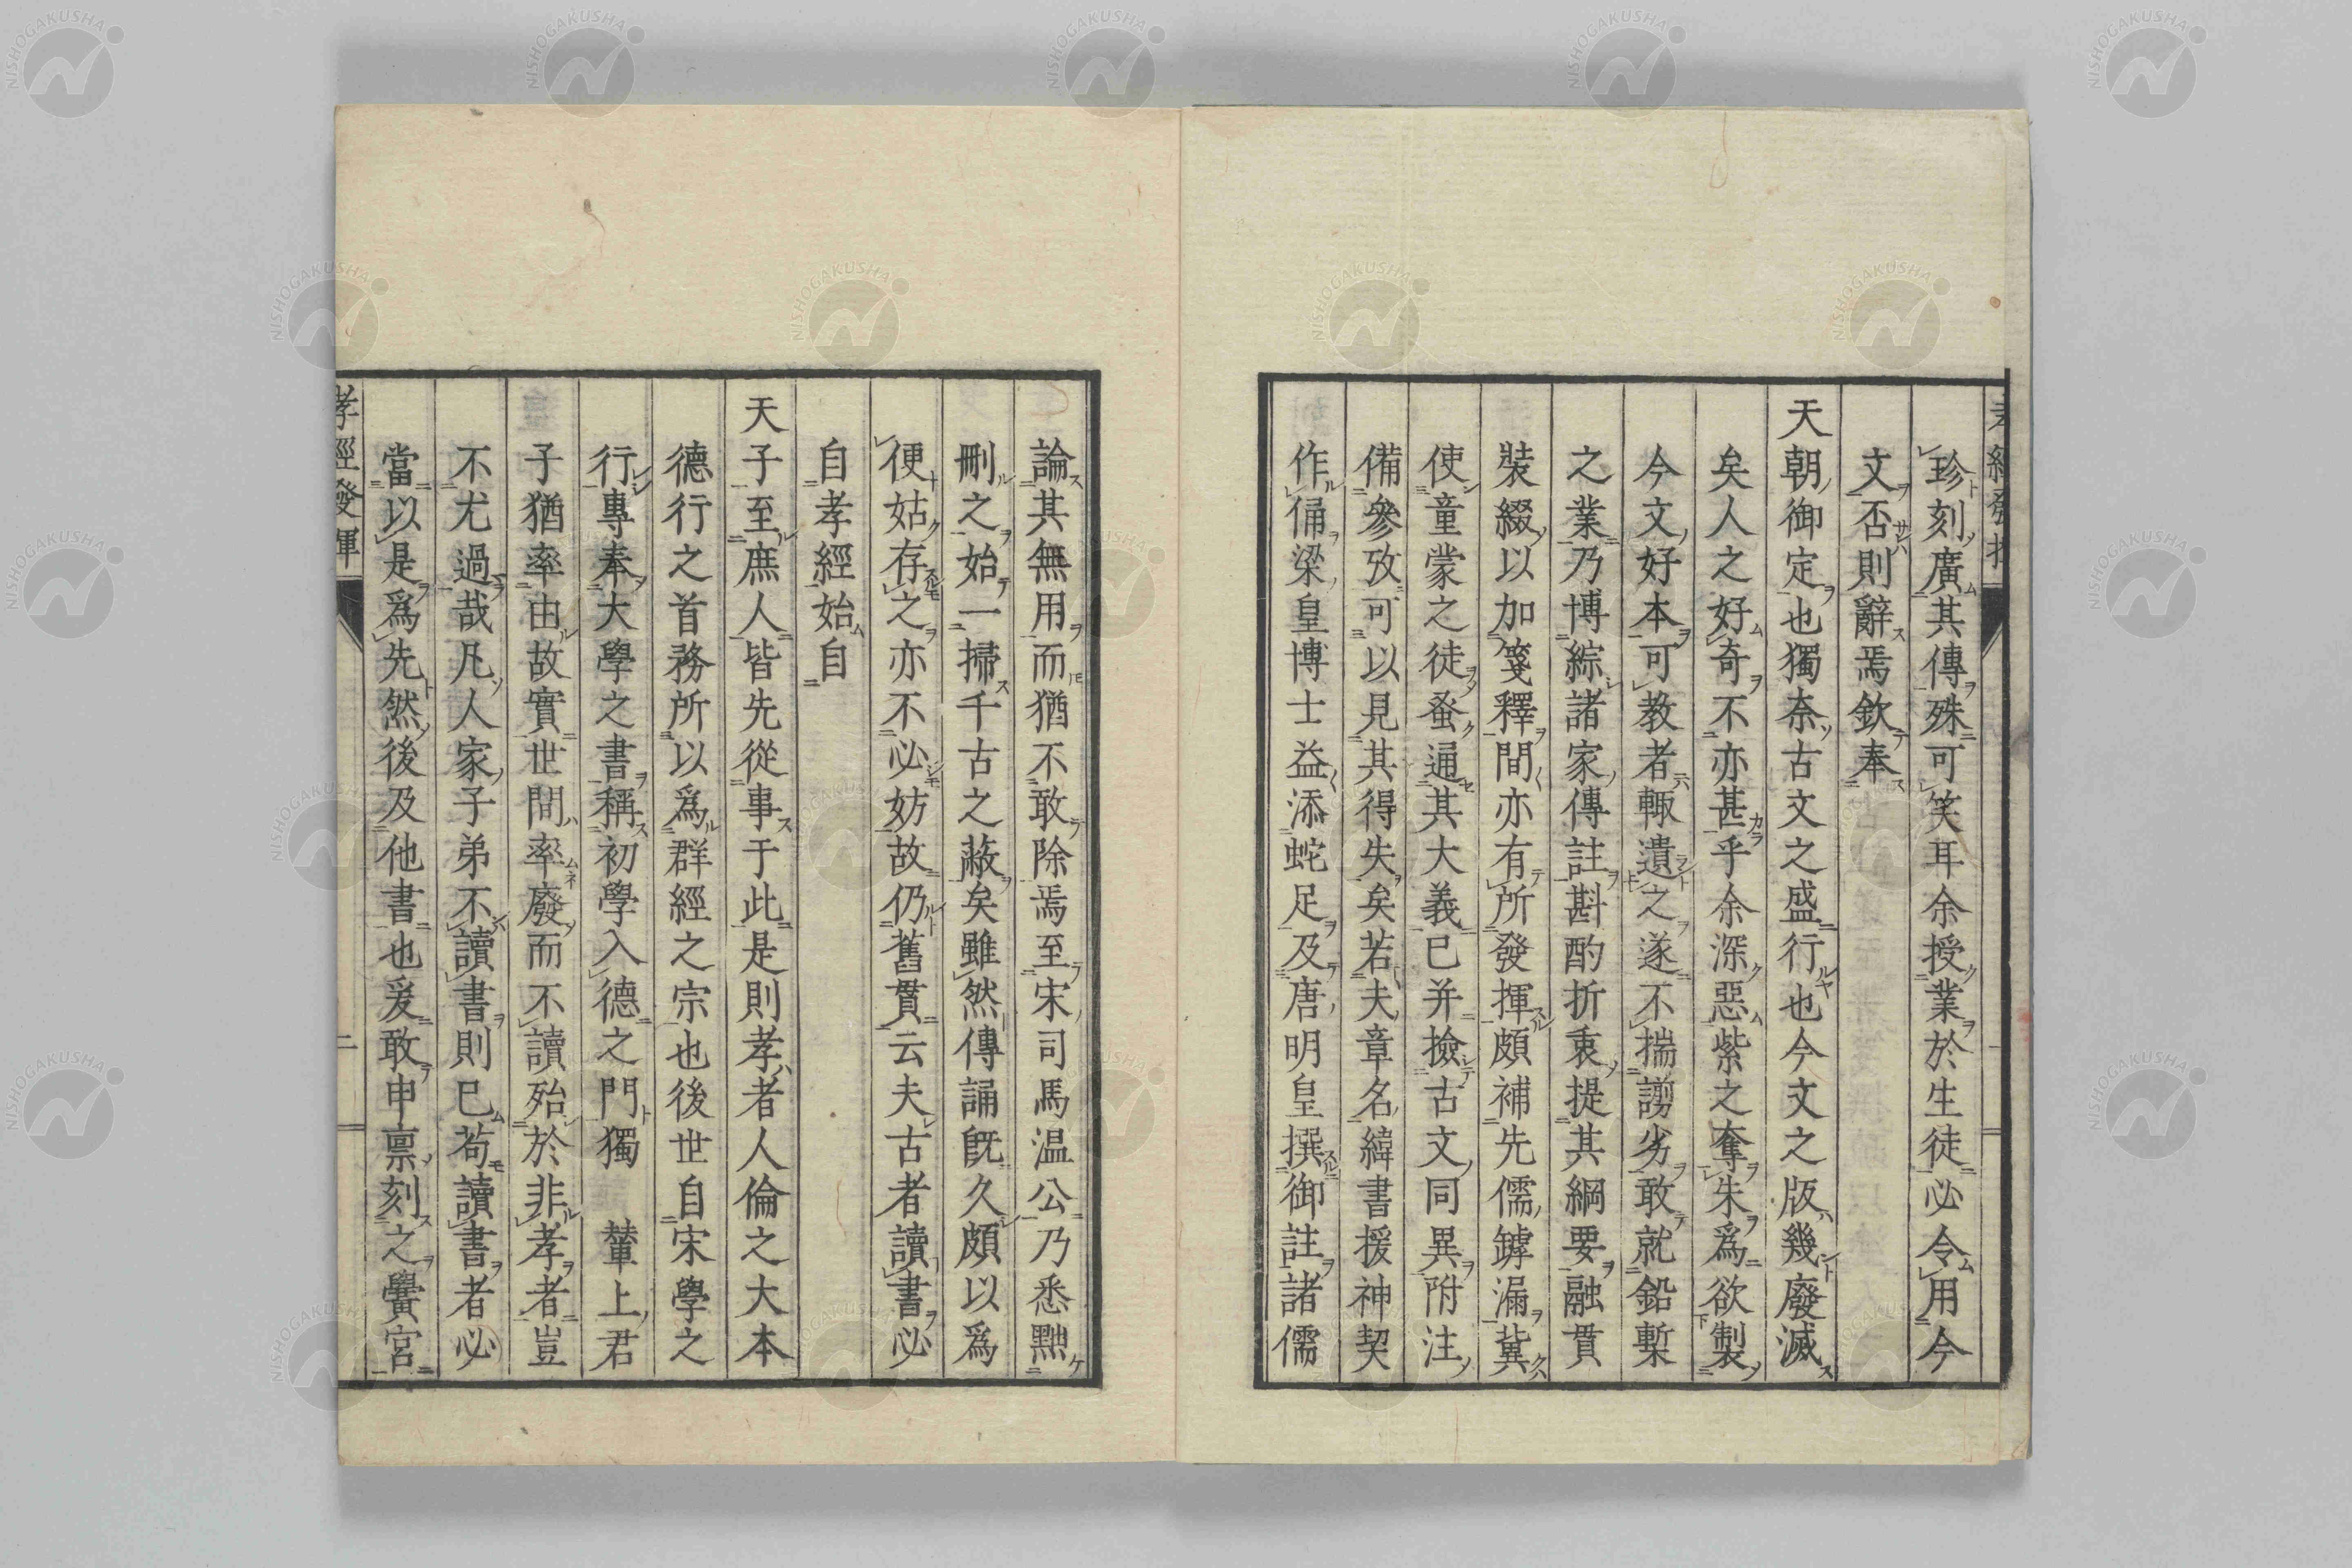 珍刻廣其傳殊可笑耳余授業於生徒必令用今
文否則辭焉欽奉
天朝御定也獨奈古文之盛行也今文之版幾廢滅
矣人之好奇不亦甚乎余深惡紫之奪朱爲欲製
今文好本可教者輙遺之遂不揣謭劣敢就鉛槧
之業乃博綜諸家傳註斟酌折衷提其綱要融貫
裝綴以加箋釋間亦有所發揮頗補先儒罅漏冀
使童蒙之徒蚤通其大義已并撿古文同異附注
備參攷可以見其得失矣若夫章名緯書援神契
作俑梁皇博士益添蛇足及唐明皇撰御註諸儒
論其無用而猶不敢除焉至宋司馬温公乃悉黜
刪之始一掃千古之蔽矣雖然傳誦旣久頗以爲
便姑存之亦不必妨故仍舊貫云夫古者讀書必
自孝經始自
天子至庶人皆先從事于此是則孝者人倫之大本
德行之首務所以爲群經之宗也後世自宋學之
行專奉大學之書稱初學入德之門獨 輦上君
子猶率由故實世間率廢而不讀殆於非孝者豈
不尤過哉凡人家子弟不讀書則已苟讀書者必
當以是爲先然後及他書也爰敢申禀刻之黌宮
孝經發揮
二